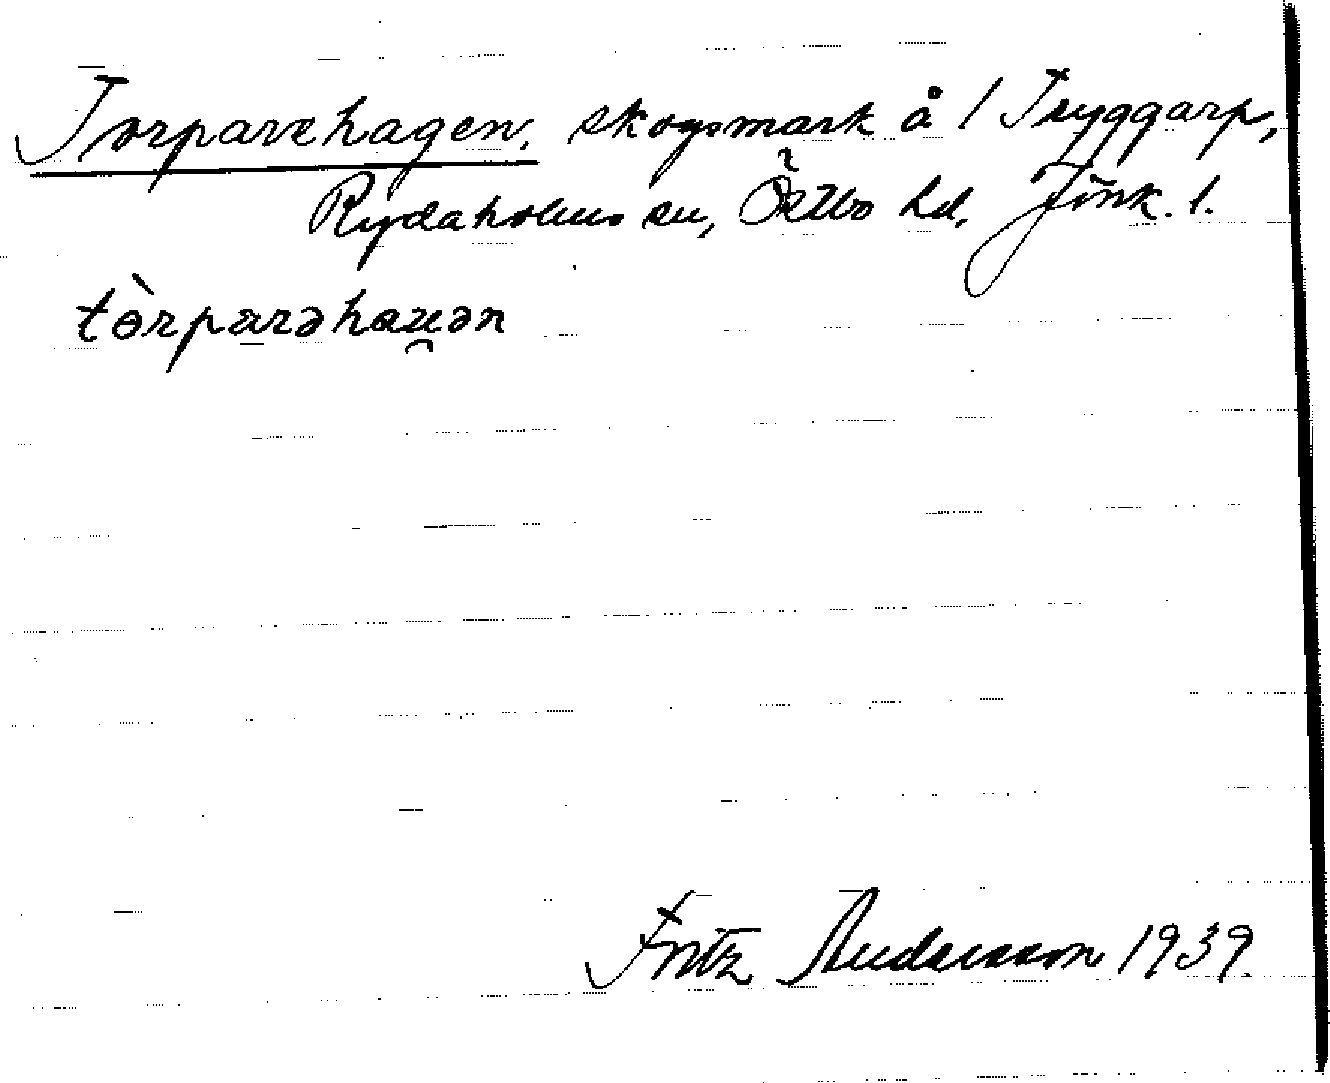 Torparehagen, skogsmark å / Tryggarp,
Rydaholms sn, Östbo hd, Jönk. l.
tòrparəhaɯ̯ən
Fritz Andersson 1939